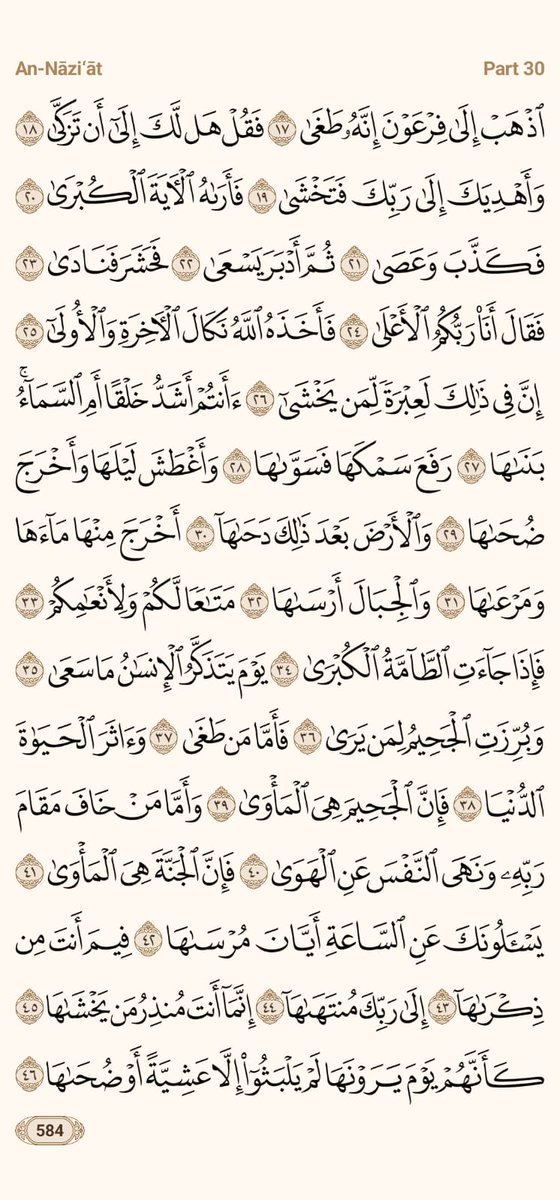 An-Nāzi‘āt Part 30
ٱذۡهَبۡ إِلَىٰ فِرۡعَوۡنَ إِنَّهُۥ طَغَىٰ ١٧ فَقُلۡ هَل لَّكَ إِلَىٰٓ أَن تَزَكَّىٰ ١٨
وَأَهۡدِيَكَ إِلَىٰ رَبِّكَ فَتَخۡشَىٰ ١٩ فَأَرَىٰهُ ٱلۡأٓيَةَ ٱلۡكُبۡرَىٰ ٢٠
فَكَذَّبَ وَعَصَىٰ ٢١ ثُمَّ أَدۡبَرَ يَسۡعَىٰ ٢٢ فَحَشَرَ فَنَادَىٰ ٢٣
فَقَالَ أَنَا۠ رَبُّكُمُ ٱلۡأَعۡلَىٰ ٢٤ فَأَخَذَهُ ٱللَّهُ نَكَالَ ٱلۡأٓخِرَةِ وَٱلۡأُولَىٰٓ ٢٥
إِنَّ فِي ذَٰلِكَ لَعِبۡرَةٗ لِّمَن يَخۡشَىٰٓ ٢٦ ءَأَنتُمۡ أَشَدُّ خَلۡقًا أَمِ ٱلسَّمَآءُۚ
بَنَىٰهَا ٢٧ رَفَعَ سَمۡكَهَا فَسَوَّىٰهَا ٢٨ وَأَغۡطَشَ لَيۡلَهَا وَأَخۡرَجَ
ضُحَىٰهَا ٢٩ وَٱلۡأَرۡضَ بَعۡدَ ذَٰلِكَ دَحَىٰهَآ ٣٠ أَخۡرَجَ مِنۡهَا مَآءَهَا
وَمَرۡعَىٰهَا ٣١ وَٱلۡجِبَالَ أَرۡسَىٰهَا ٣٢ مَتَٰعٗا لَّكُمۡ وَلِأَنۡعَٰمِكُمۡ ٣٣
فَإِذَا جَآءَتِ ٱلطَّآمَّةُ ٱلۡكُبۡرَىٰ ٣٤ يَوۡمَ يَتَذَكَّرُ ٱلۡإِنسَٰنُ مَا سَعَىٰ ٣٥
وَبُرِّزَتِ ٱلۡجَحِيمُ لِمَن يَرَىٰ ٣٦ فَأَمَّا مَن طَغَىٰ ٣٧ وَءَاثَرَ ٱلۡحَيَوٰةَ
ٱلدُّنۡيَا ٣٨ فَإِنَّ ٱلۡجَحِيمَ هِيَ ٱلۡمَأۡوَىٰ ٣٩ وَأَمَّا مَنۡ خَافَ مَقَامَ
رَبِّهِۦ وَنَهَى ٱلنَّفۡسَ عَنِ ٱلۡهَوَىٰ ٤٠ فَإِنَّ ٱلۡجَنَّةَ هِيَ ٱلۡمَأۡوَىٰ ٤١
يَسۡـَٔلُونَكَ عَنِ ٱلسَّاعَةِ أَيَّانَ مُرۡسَىٰهَا ٤٢ فِيمَ أَنتَ مِن
ذِكۡرَىٰهَآ ٤٣ إِلَىٰ رَبِّكَ مُنتَهَىٰهَآ ٤٤ إِنَّمَآ أَنتَ مُنذِرُ مَن يَخۡشَىٰهَا ٤٥
كَأَنَّهُمۡ يَوۡمَ يَرَوۡنَهَا لَمۡ يَلۡبَثُوٓاْ إِلَّا عَشِيَّةً أَوۡ ضُحَىٰهَا ٤٦
584